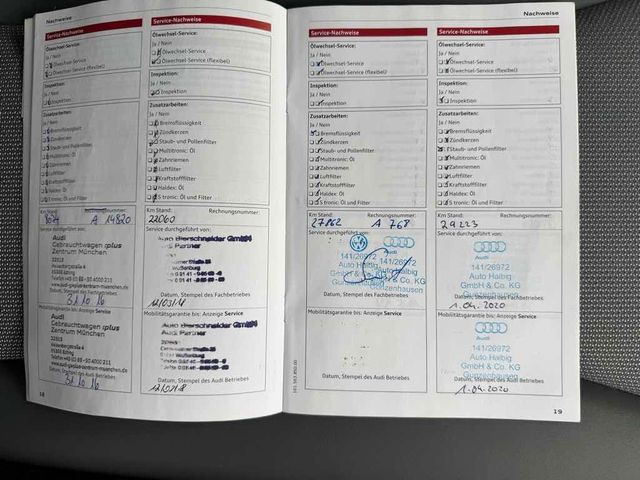 Nachweise
Service-Nachweise
Ölwechsel-Service:
Ja / Nein
Ölwechsel-Service
Ölwechsel-Service (flexibel)
Inspektion:
Ja / Nein
Inspektion
Zusatzarbeiten:
Ja / Nein
Bremsflüssigkeit
Zündkerzen
Staub- und Pollenfilter
Multitronic: Öl
Zahnriemen
Luftfilter
Kraftstofffilter
Haldex: Öl
S tronic: Öl und Filter
Km Stand: Rechnungsnummer:
A 14820
Service durchgeführt von:
Audi
Gebrauchtwagen :plus
Zentrum München
Datum, Stempel des Fachbetriebes
31.10.16
Mobilitätsgarantie bis: Anzeige Service
Audi
Gebrauchtwagen :plus
Zentrum München
Datum, Stempel des Audi Betriebes
31.10.16
18
Service-Nachweise
Ölwechsel-Service:
Ja / Nein
Ölwechsel-Service
Ölwechsel-Service (flexibel)
Inspektion:
Ja / Nein
Inspektion
Zusatzarbeiten:
Ja / Nein
Bremsflüssigkeit
Zündkerzen
Staub- und Pollenfilter
Multitronic: Öl
Zahnriemen
Luftfilter
Kraftstofffilter
Haldex: Öl
S tronic: Öl und Filter
Km Stand: Rechnungsnummer:
22060
Service durchgeführt von:
Auto Bierschneider GmbH
Audi Partner
Weißenburg
Datum, Stempel des Fachbetriebes
Mobilitätsgarantie bis: Anzeige Service
Auto Bierschneider GmbH
Audi Partner
Weißenburg
Datum, Stempel des Audi Betriebes
Nachweise
Service-Nachweise
Ölwechsel-Service:
Ja / Nein
Ölwechsel-Service
Ölwechsel-Service (flexibel)
Inspektion:
Ja / Nein
Inspektion
Zusatzarbeiten:
Ja / Nein
Bremsflüssigkeit
Zündkerzen
Staub- und Pollenfilter
Multitronic: Öl
Zahnriemen
Luftfilter
Kraftstofffilter
Haldex: Öl
S tronic: Öl und Filter
Km Stand: Rechnungsnummer:
27862 A 768
Service durchgeführt von:
141/26972
Auto Halbig
GmbH & Co. KG
Gunzenhausen
Datum, Stempel des Fachbetriebes
Mobilitätsgarantie bis: Anzeige Service
Datum, Stempel des Audi Betriebes
Service-Nachweise
Ölwechsel-Service:
Ja / Nein
Ölwechsel-Service
Ölwechsel-Service (flexibel)
Inspektion:
Ja / Nein
Inspektion
Zusatzarbeiten:
Ja / Nein
Bremsflüssigkeit
Zündkerzen
Staub- und Pollenfilter
Multitronic: Öl
Zahnriemen
Luftfilter
Kraftstofffilter
Haldex: Öl
S tronic: Öl und Filter
Km Stand: Rechnungsnummer:
29223
Service durchgeführt von:
Audi
141/26972
Auto Halbig
GmbH & Co. KG
Gunzenhausen
Datum, Stempel des Fachbetriebes
1.04.2020
Mobilitätsgarantie bis: Anzeige Service
Audi
141/26972
Auto Halbig
GmbH & Co. KG
Gunzenhausen
Datum, Stempel des Audi Betriebes
1.04.2020
19